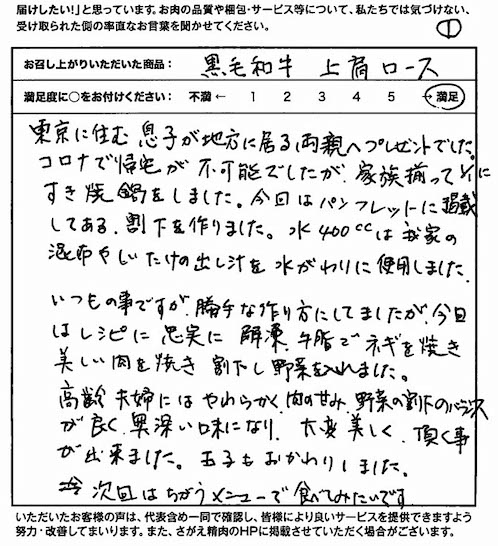 届けしたい!」と思っています。お肉の品質や梱包・サービス等について、私たちでは気づけない、
受け取られた側の率直なお言葉を聞かせてください。
①
お召し上がりいただいた商品: 黒毛和牛 上肩ロース
満足度に○をお付けください: 不満 ← 1 2 3 4 5 → 満足
東京に住む 息子が地方に居る両親へプレゼントでした。
コロナで帰宅が 不可能でしたが、家族揃って1/1に
すき焼鍋をしました。今回はパンフレットに掲載
してある、割下を作りました。水400ccは我家の
昆布やしいたけの出し汁を水がわりに使用しました。
いつもの事ですが、勝手な作り方にしてましたが、今回
はレシピに忠実に 解凍、牛脂でネギを焼き
美しい肉を焼き 割下し野菜を入れました。
高齢夫婦にはやわらかく、肉の甘み、野菜の割下のバランス
が良く、奥深い味になり、大変美しく、頂く事
が出来ました。玉子もおかわりしました。
次回はちがうメニューで食べてみたいです
いただいたお客様の声は、代表含め一同で確認し、皆様により良いサービスを提供できますよう
努力・改善してまいります。また、さがえ精肉のHPに掲載させていただく場合がございます。